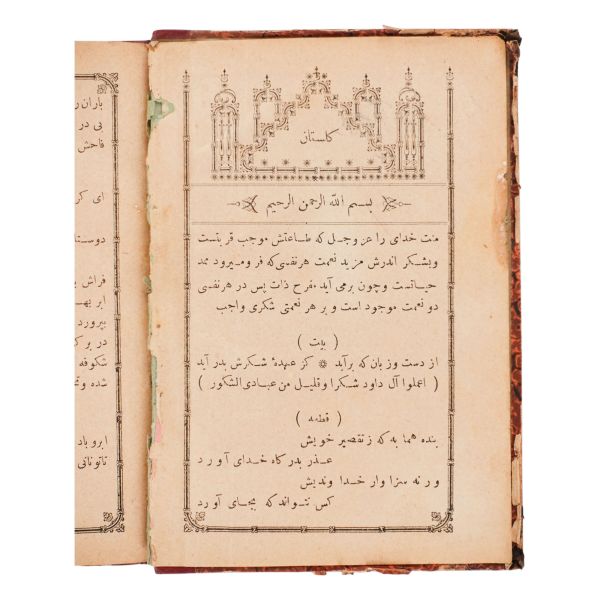 كلستان
بسم الله الرحمن الرحيم
منت خداى را عز وجل كه طاعتش موجب قربتست
وبشكر اندرش مزيد نعمت هر نفسى كه فرو ميرود ممد
حياتست وچون برمى آيد مفرح ذات پس در هر نفسى
دو نعمت موجود است و بر هر نعمتى شكرى واجب
( بيت )
از دست وزبان كه برآيد ❋ كز عهدهٔ شكرش بدر آيد
( اعملوا آل داود شكرا وقليل من عبادى الشكور )
( قطعه )
بنده هما به كه ز تقصير خويش
عذر بدركاه خداى آورد
ورنه سزاوار خداونديش
كس نتواند كه بجاى آورد
باران ر
بى در
فاحش
اى كر
دوستا
فراش
ابر بهـ
بپرورد
در بر ك
شكوفه
شده وتخ
ابر وباد
تا تو نانى